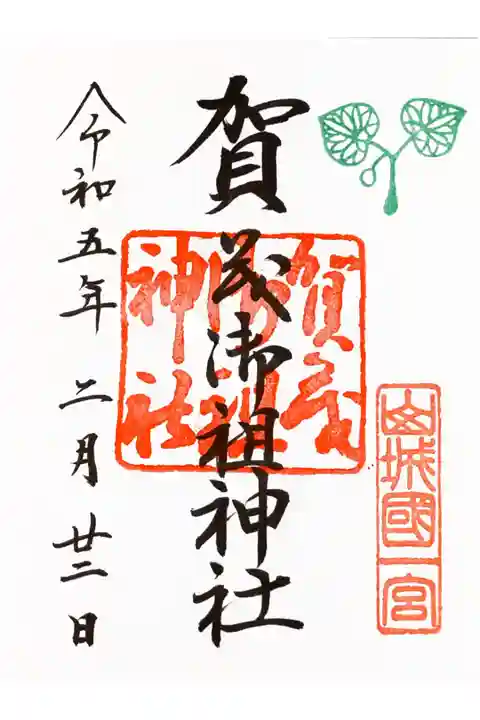 山城國一宮
賀茂御祖神社
賀茂御祖神社
令和五年二月廿二日